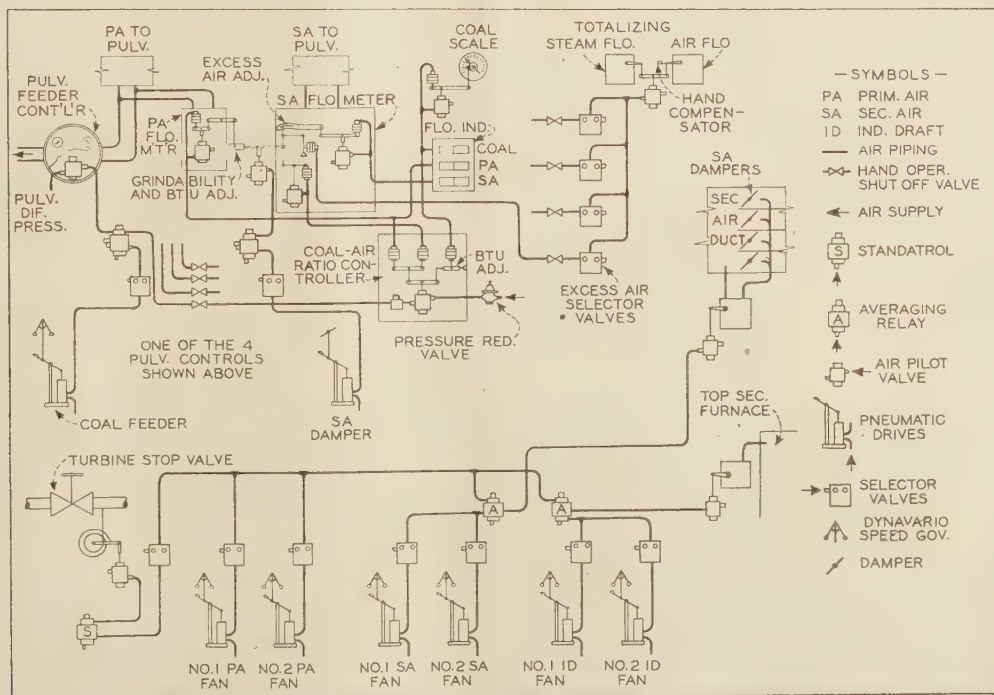 PA TO
PULV.
SA TO
PULV.
COAL
SCALE
TOTALIZING
STEAM FLO.
AIR FLO
EXCESS
AIR ADJ.
PULV.
FEEDER
CONT'L'R
SA FLO METER
HAND
COMPEN-
SATOR
PA
FLO.
M'T'R
FLO. IND.
COAL
PA
SA
GRINDABILITY
AND BTU ADJ.
PULV.
DIF.
PRESS.
COAL-AIR
RATIO CON-
TROLLER
BTU
ADJ.
EXCESS AIR
SELECTOR
VALVES
PRESSURE RED.
VALVE
SA
DAMPERS
SEC
AIR
DUCT
S
S
ONE OF THE 4
PULV. CONTROLS
SHOWN ABOVE
COAL FEEDER
SA
DAMPER
TOP SEC.
FURNACE
TURBINE STOP VALVE
A
A
S
NO.1 PA
FAN
NO.2 PA
FAN
NO.1 SA
FAN
NO.2 SA
FAN
NO.1 ID
FAN
NO.2 ID
FAN
— SYMBOLS —
PA PRIM. AIR
SA SEC. AIR
ID IND. DRAFT
AIR PIPING
HAND OPER.
SHUT OFF VALVE
AIR SUPPLY
S STANDATROL
A AVERAGING
RELAY
AIR PILOT
VALVE
PNEUMATIC
DRIVES
SELECTOR
VALVES
DYNAVARIO
SPEED GOV.
DAMPER